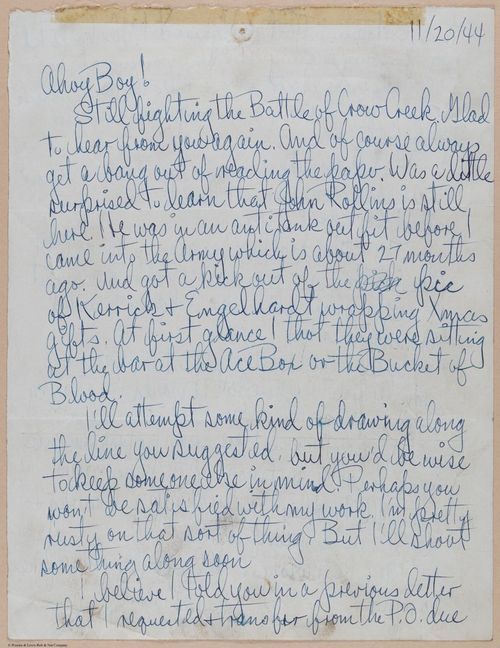 11/20/44
Ahoy Boy!
Still fighting the Battle of Crow Creek. Glad
to hear from you again. And of course always
get a bang out of reading the papo. Was a little
surprised to learn that John Rollins is still
here. He was in an antitank outfit before I
came into the Army which is about 27 months
ago. And got a kick out of the pic
of Kerrick & Engelhardt wrapping Xmas
gifts. At first glance I thot they were sitting
at the bar at the Ace Box or the Bucket of
Blood.
I'll attempt some kind of drawing along
the line you suggested but you'd be wise
to keep someone else in mind. Perhaps you
won't be satisfied with my work. I'm pretty
rusty on that sort of thing. But I'll shoot
something along soon
I believe I told you in a previous letter
that I requested a transfer from the P.O. due